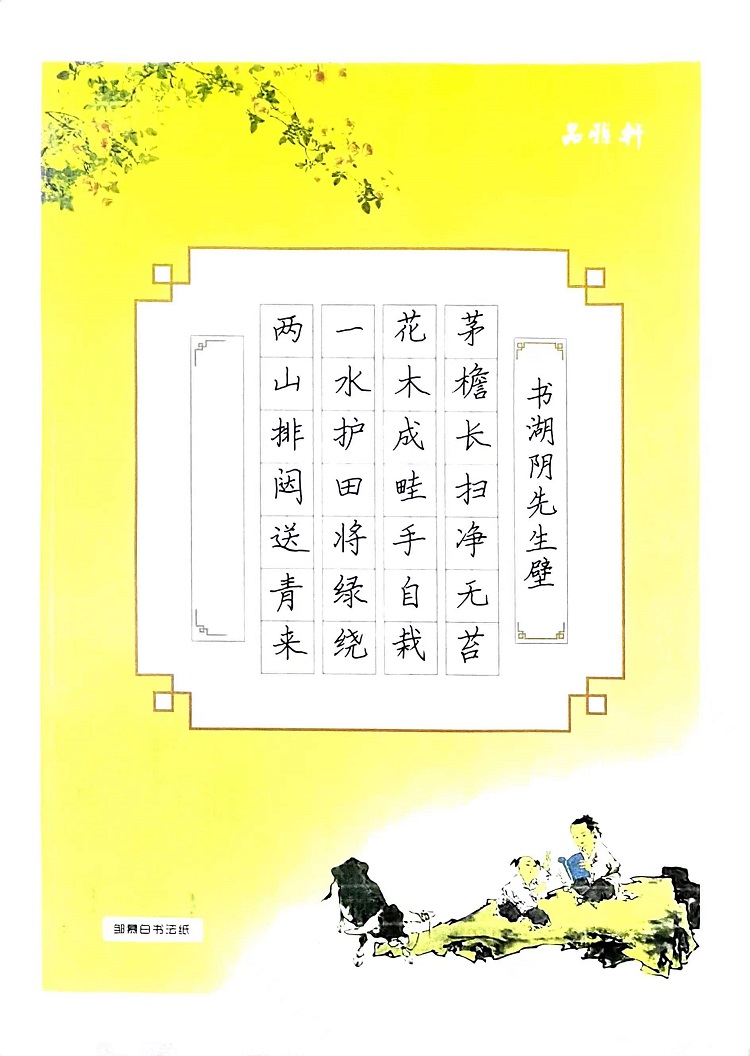 品雅轩
书湖阴先生壁
茅檐长扫净无苔
花木成畦手自栽
一水护田将绿绕
两山排闼送青来
邹慕白书法纸